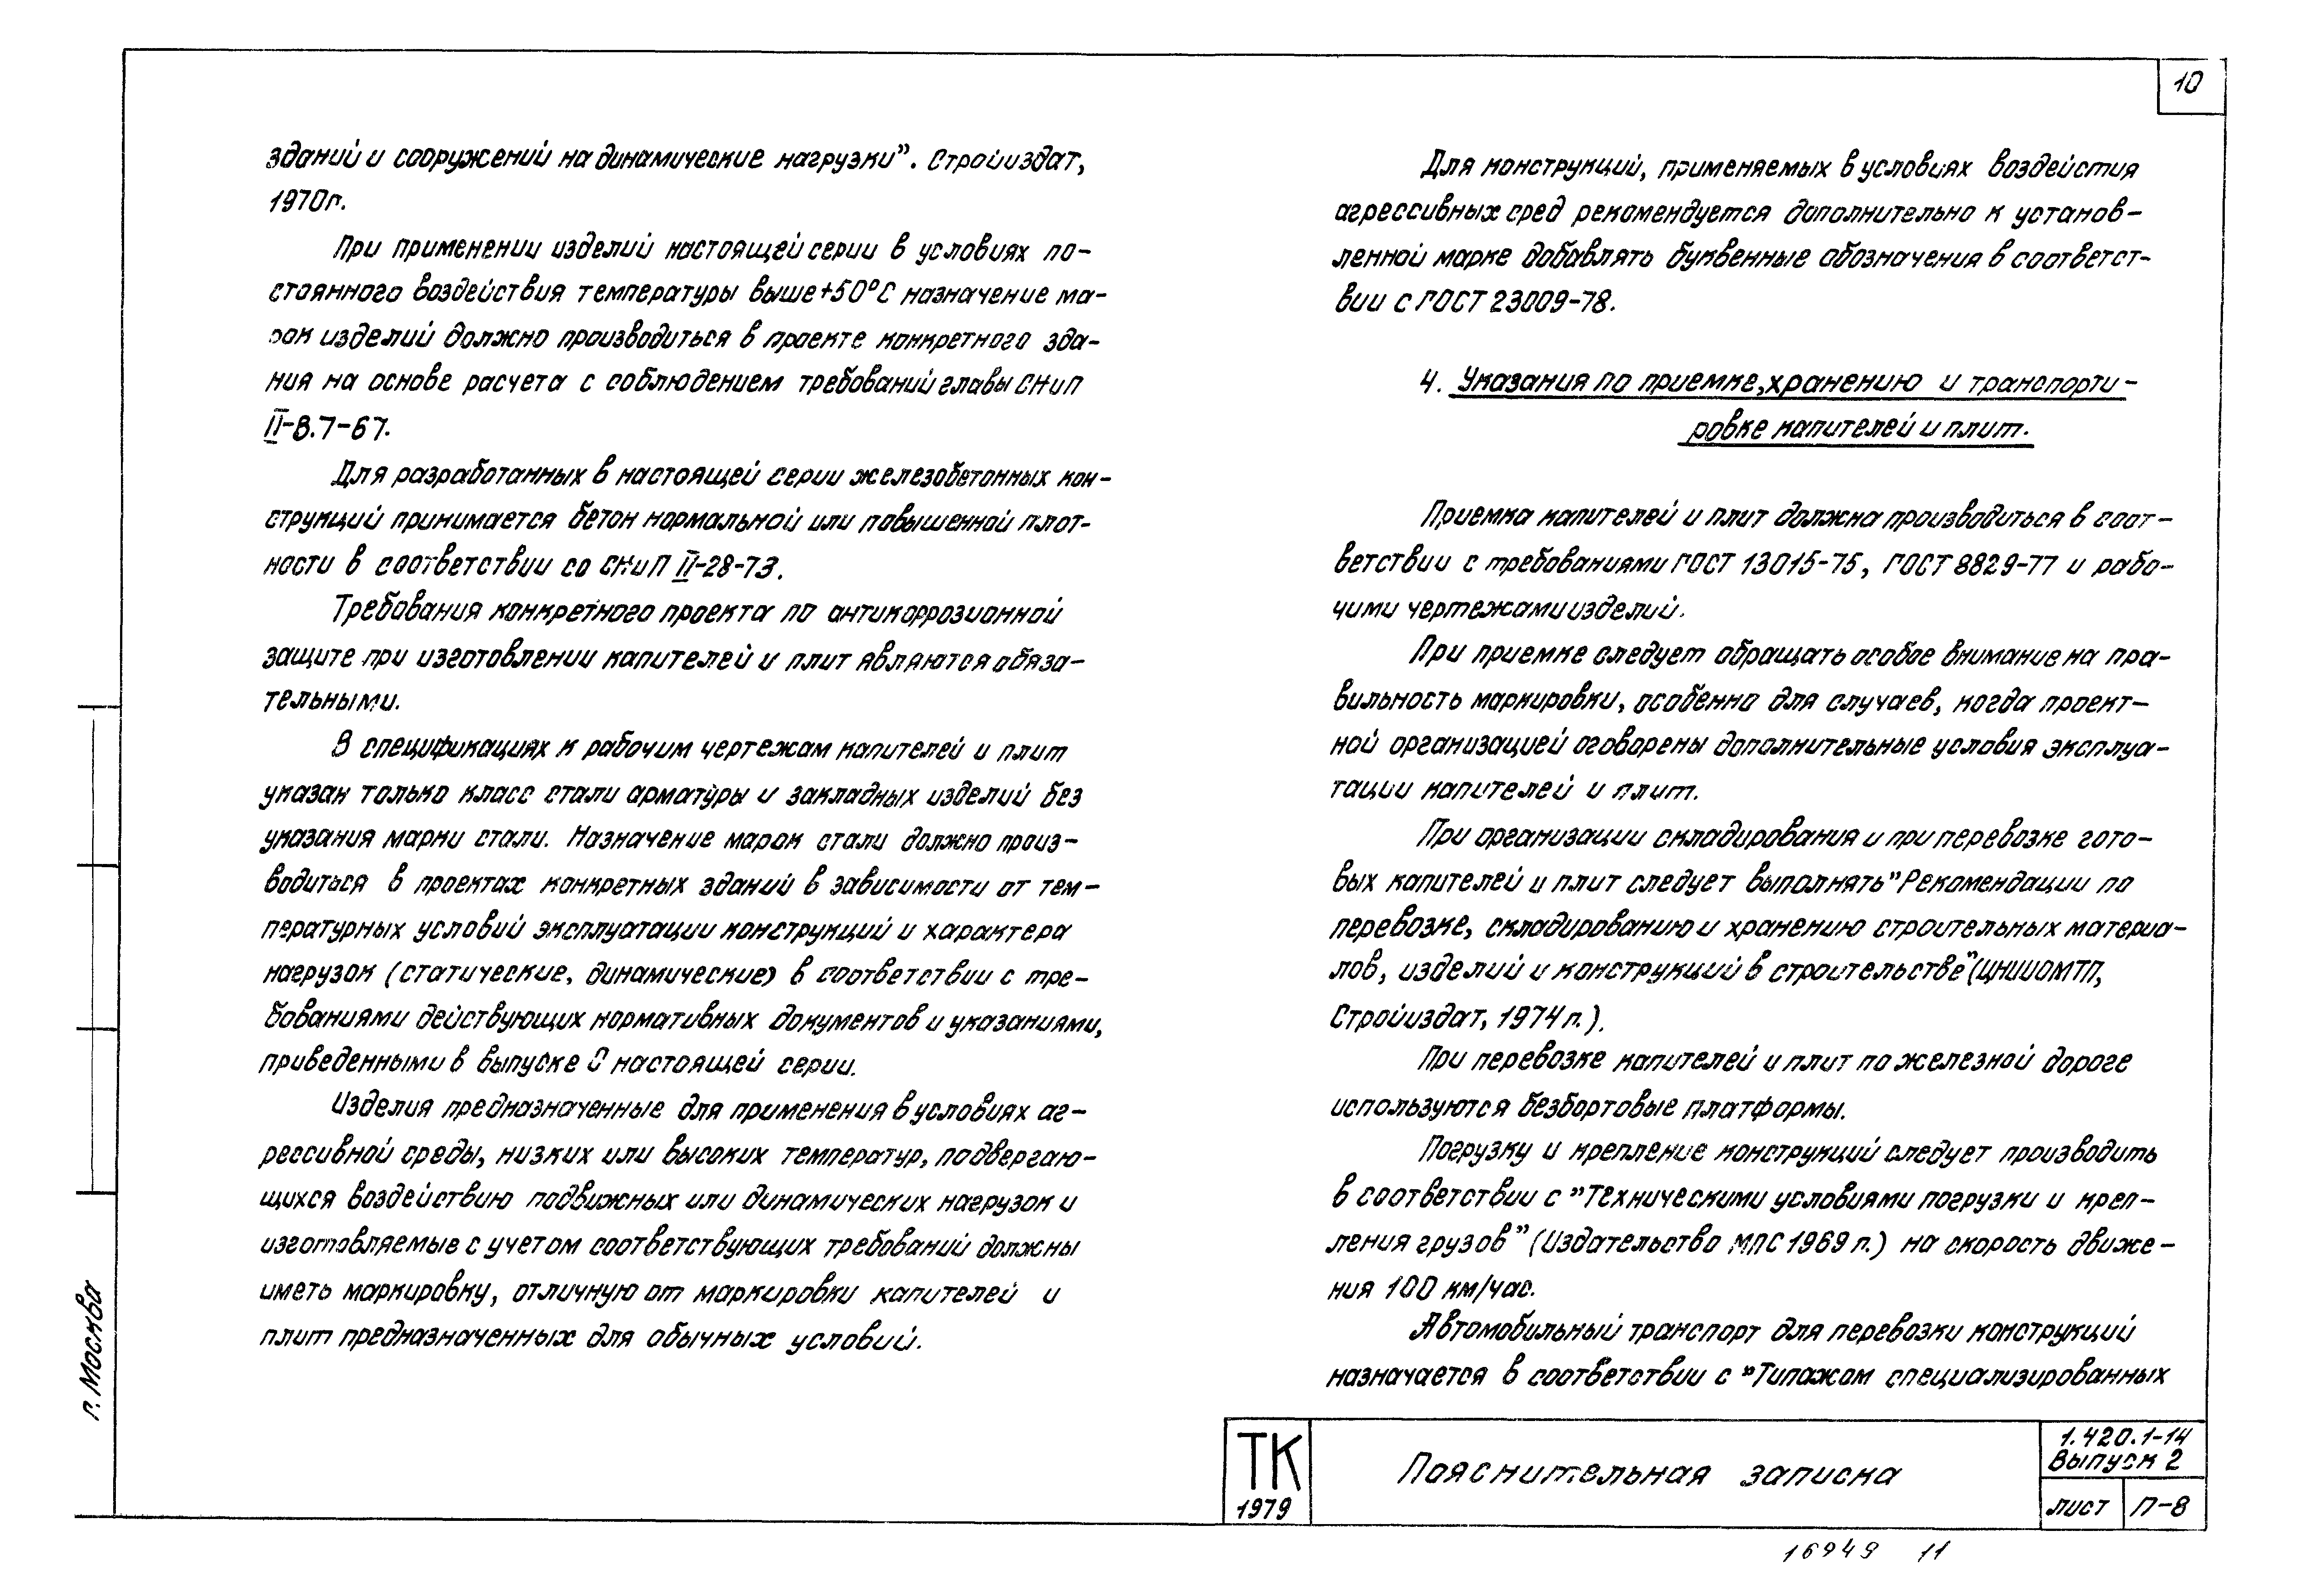 10
зданий и сооружений на динамические нагрузки”. Стройиздат,
1970г.
При применении изделий настоящей серии в условиях по-
стоянного воздействия температуры выше +50°С назначение ма-
рок изделий должно производиться в проекте конкретного зда-
ния на основе расчета с соблюдением требований главы СНиП
II-В.7-67.
Для разработанных в настоящей серии железобетонных кон-
струкций принимается бетон нормальной или повышенной плот-
ности в соответствии со СНиП II-28-73.
Требования конкретного проекта по антикоррозионной
защите при изготовлении капителей и плит являются обяза-
тельными.
В спецификациях к рабочим чертежам капителей и плит
указан только класс стали арматуры и закладных изделий без
указания марки стали. Назначение марок стали должно произ-
водиться в проектах конкретных зданий в зависимости от тем-
пературных условий эксплуатации конструкций и характера
нагрузок (статические, динамические) в соответствии с тре-
бованиями действующих нормативных документов и указаниями,
приведенными в выпуске 0 настоящей серии.
Изделия предназначенные для применения в условиях аг-
рессивной среды, низких или высоких температур, подвергаю-
щихся воздействию подвижных или динамических нагрузок и
изготовляемые с учетом соответствующих требований должны
иметь маркировку, отличную от маркировки капителей и
плит предназначенных для обычных условий.
Для конструкций, применяемых в условиях воздействия
агрессивных сред рекомендуется дополнительно к установ-
ленной марке добавлять буквенные обозначения в соответст-
вии с ГОСТ 23009-78.
4. Указания по приемке, хранению и транспорти-
ровке капителей и плит.
Приемка капителей и плит должна производиться в соот-
ветствии с требованиями ГОСТ 13015-75, ГОСТ 8829-77 и рабо-
чими чертежами изделий.
При приемке следует обращать особое внимание на пра-
вильность маркировки, особенно для случаев, когда проект-
ной организацией оговорены дополнительные условия эксплуа-
тации капителей и плит.
При организации складирования и при перевозке гото-
вых капителей и плит следует выполнять "Рекомендации по
перевозке, складированию и хранению строительных материа-
лов, изделий и конструкций в строительстве" (ЦНИИОМТП,
Стройиздат, 1974 г.).
При перевозке капителей и плит по железной дороге
используются безбортовые платформы.
Погрузку и крепление конструкций следует производить
в соответствии с ”Техническими условиями погрузки и креп-
ления грузов” (Издательство МПС 1969 г.) на скорость движе-
ния 100 км/час.
Автомобильный транспорт для перевозки конструкций
назначается в соответствии с ”Типажом специализированных
г. Москва
ТК
1979
Пояснительная записка
1.420.1-14
Выпуск 2
лист П-8
16949 11